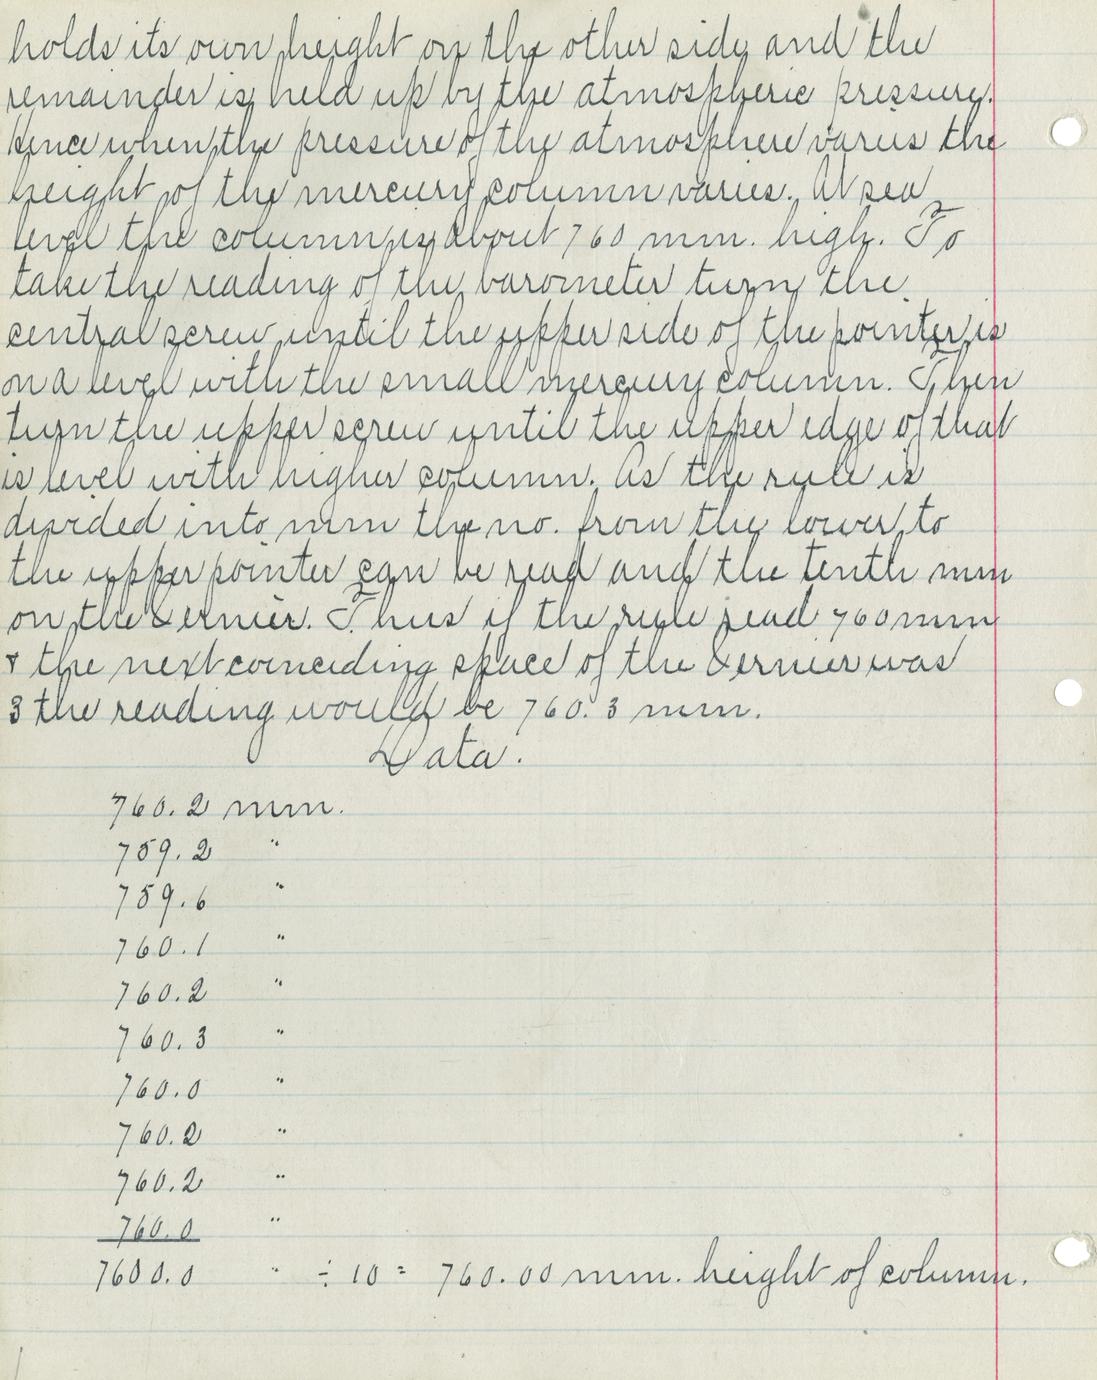 holds its own height on the other side and the
remainder is held up by the atmospheric pressure.
Hence when the pressure of the atmosphere varies the
height of the mercury column varies. At sea
level the column is about 760 mm. high. To
take the reading of the barometer turn the
central screw until the upper side of the pointer is
on a level with the small mercury column. Then
turn the upper screw until the upper edge of that
is level with higher column. As the rule is
divided into mm the no. from the lower to
the upper pointer can be read and the tenth mm
on the Vernier. Thus if the rule read 760 mm
& the next coinciding space of the Vernier was
3 the reading would be 760.3 mm.
Data.
760.2 mm.
759.2 "
759.6 "
760.1 "
760.2 "
760.3 "
760.0 "
760.2 "
760.2 "
760.0 "
7600.0 " ÷ 10 = 760.00 mm. height of column.